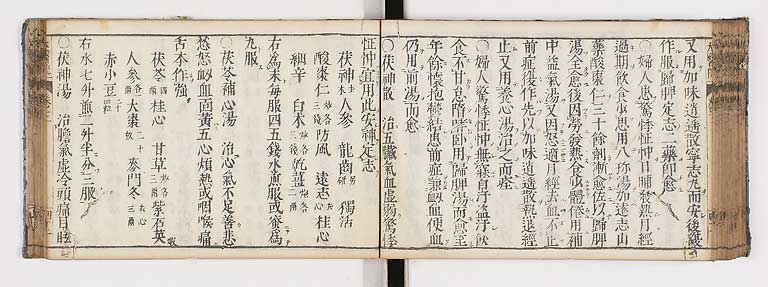 又用加味逍遙散寧志丸而安後發
作服歸脾定志二藥即愈
○一婦人患驚悸怔忡日晡發熱月經
過期飲食少思用八珍湯加遠志山
藥酸棗仁三十餘劑漸愈佐以歸脾
湯全愈後因勞發熱食少體倦用補
中益氣湯又因怒適月經去血不止
前症復作先以加味逍遙散熱退經
止又用養心湯治之而痊
○一婦人驚悸怔忡無寐自汗盜汗飲
食不甘怠惰嗜臥用歸脾湯而愈至
年餘懷抱鬱結患前症兼衄血便血
仍用前湯而愈
○茯神散 治五臟氣血虛弱驚悸
怔忡宜用此安神定志
茯神 人參 龍齒 獨活
酸棗仁 防風 遠志 桂心
細辛 白朮 乾薑
右為末每服四五錢水煎服或蜜為
丸服
○茯苓補心湯 治心氣不足善悲
愁怒衄血面黃五心煩熱或咽喉痛
舌本作強
茯苓 桂心 甘草 紫石英
人參 大棗 麥門冬
赤小豆
右水七升煎二升半分三服
○茯神湯 治膽氣虛冷頭痛目眩